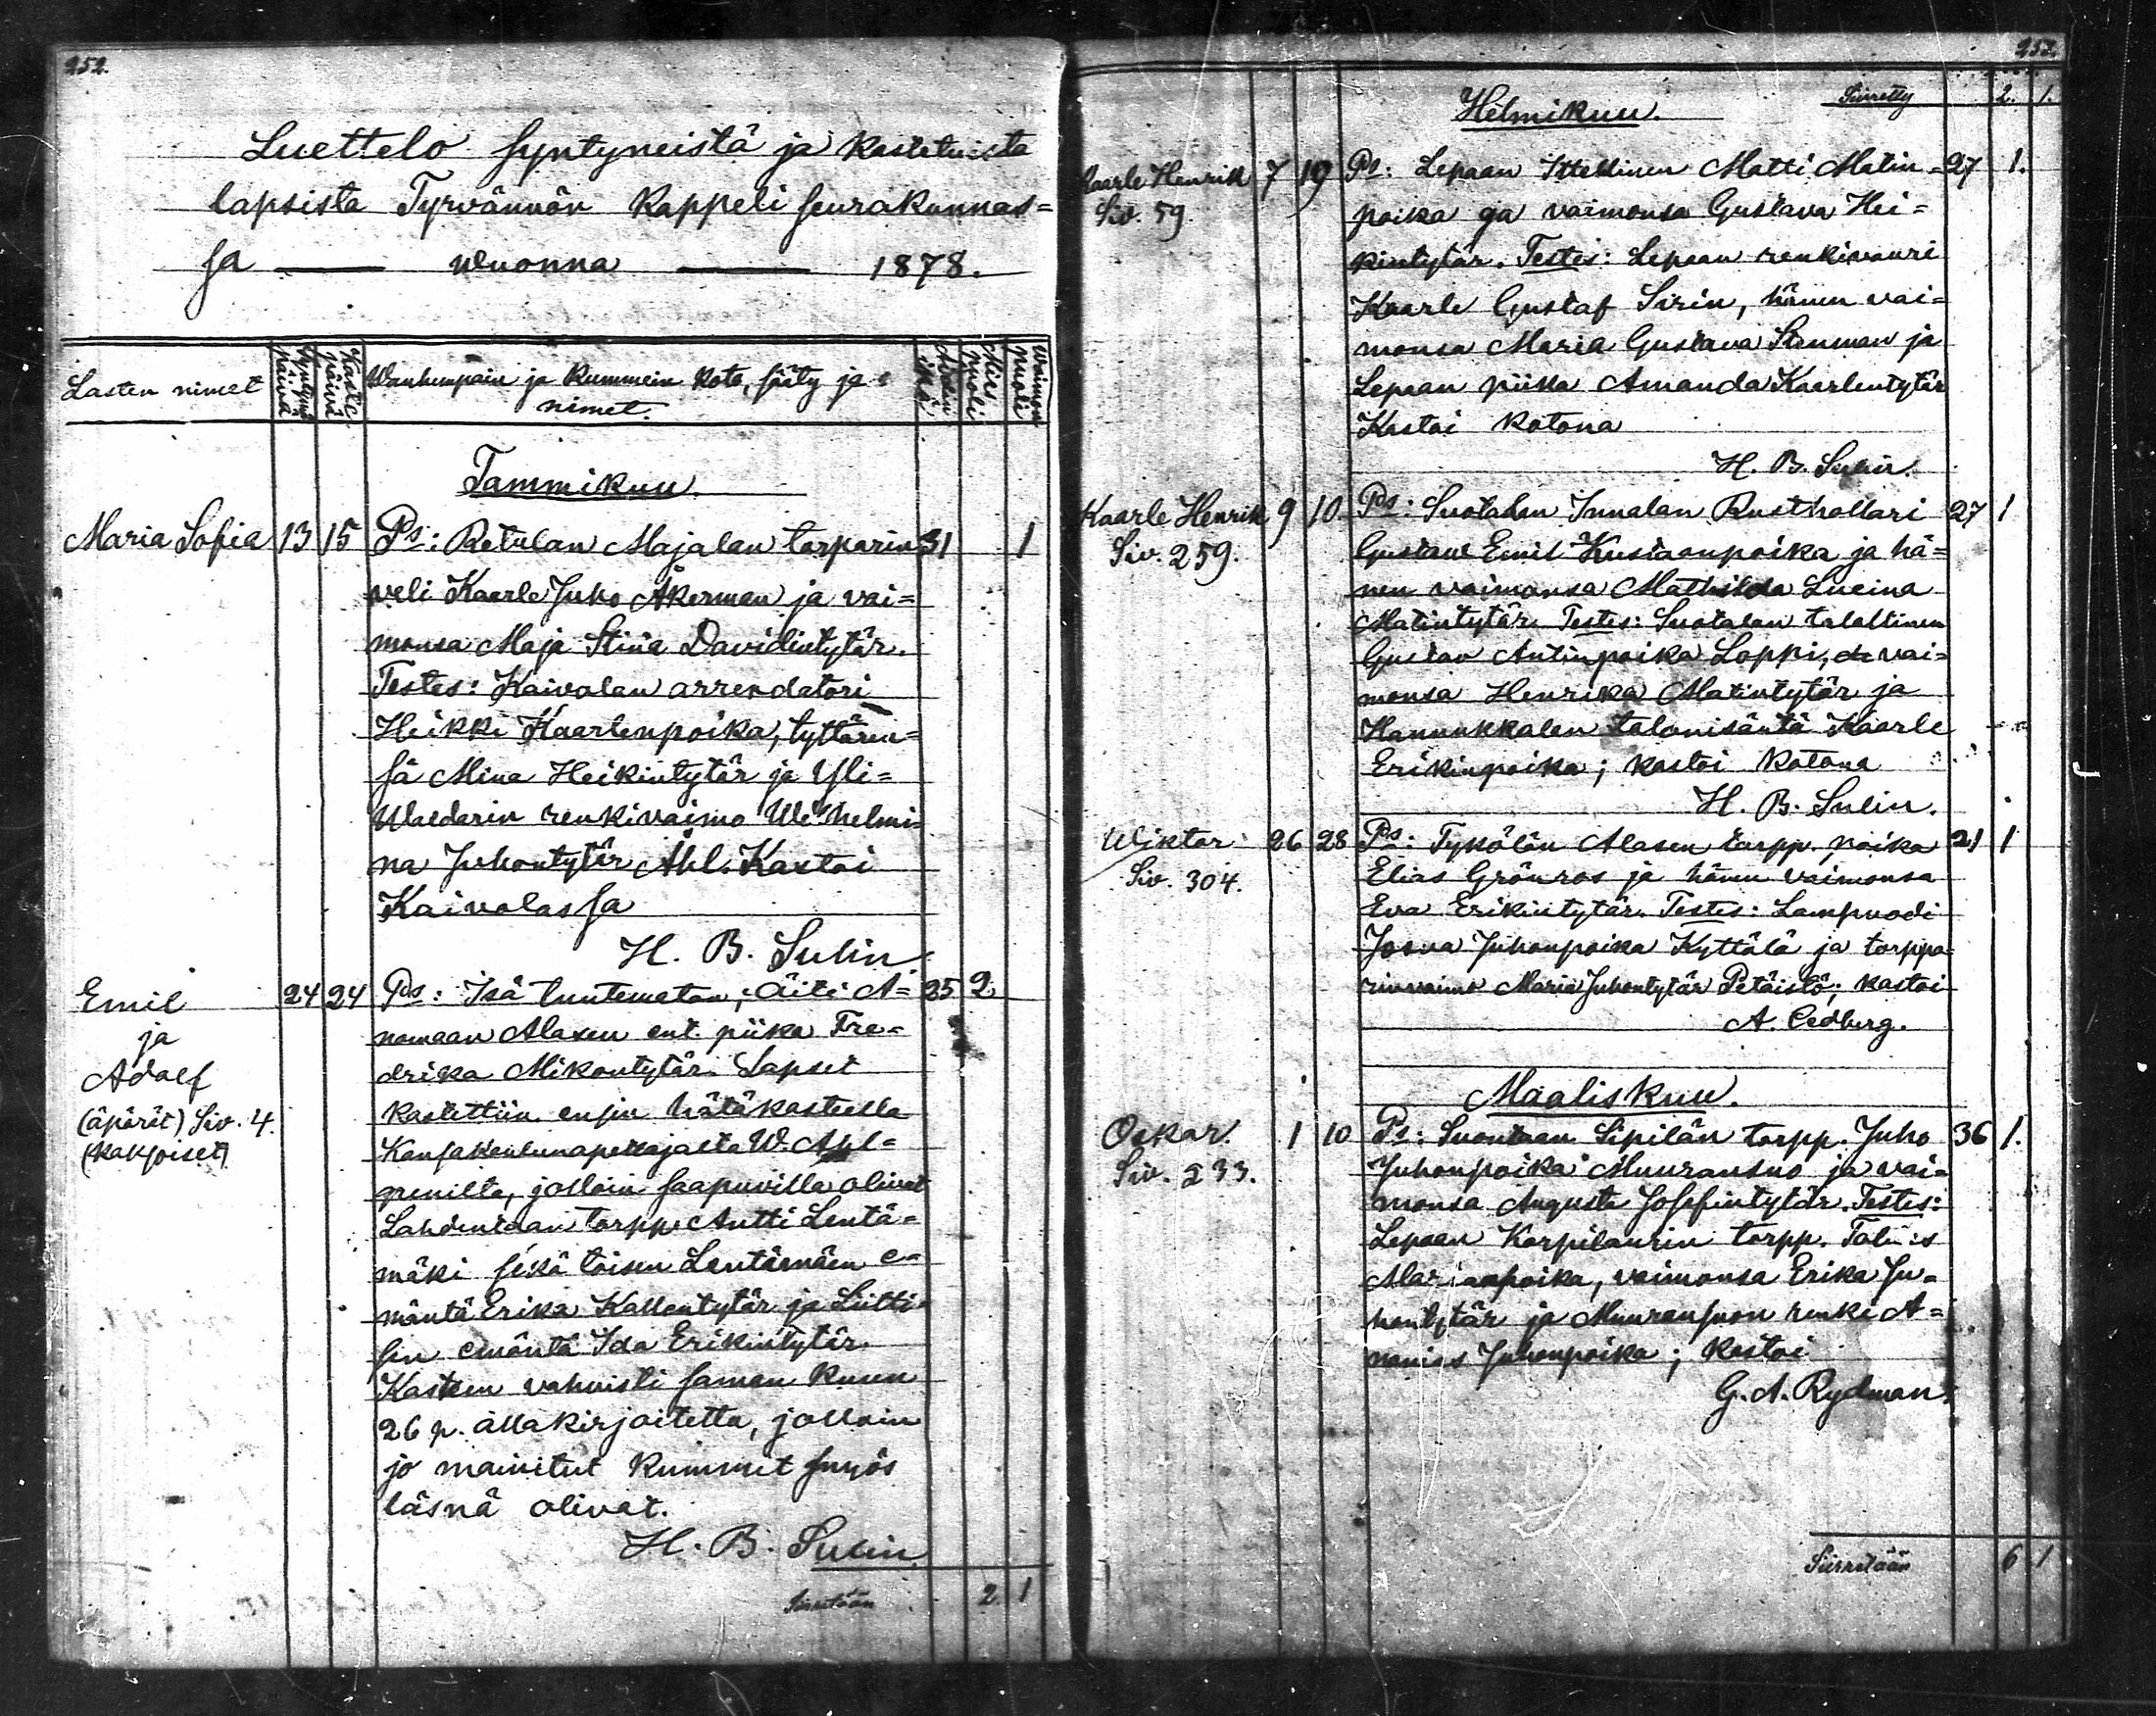 252.
Luettelo syntyneistä ja kastetuista
lapsista Tyrvännön Kappeli seurakunnas=
sa — wuonna — 1878.
Lasten nimet
Syntymä päivä
Kaste päivä
Wanhempain ja Kummein koto, sääty ja
nimet.
Äidin ikä
Mies puoli
Waimon puoli
Tammikuu.
Maria Sofia 13 15 Ps: Retulan Majalan torparin 31 1
veli Kaarle Juho Åkerman ja vai=
monsa Maja Stina Davidintytär.
Testes: Kaivolan arrendatori
Heikki Kaarlenpoika, tyttären=
sä Mina Heikintytär ja Yli=
Waedarin renkivaimo Wilhelmi=
na Juhontytär Ahl. Kastoi
Kaivolassa
H. B. Sulin
Emil 24 24 Ps: Isä tuntematon; Äiti A= 25 2
ja
Adolf
(äpärät) Siv. 4.
(kaksoiset)
nomaan Alasen ent. piika Fre=
drika Mikontytär. Lapset
kastettiin ensin hätäkasteella
Kansakoulunopettajalta W. Ahl=
grenilta, jolloin saapuvilla olivat
Lahdentaan torpp. Antti Lentä=
mäki sekä toisen Lentämäen e=
mäntä Erika Kallentytär ja
sin emäntä Ida Erikintytär.
Kasteen vahvisti saman kuun
26 p. allakirjoitettu, jolloin
jo mainitut kummit myös
läsnä olivat.
H. B. Sulin
Siirretään 2 1
253.
Helmikuu. Siirretty 2. 1.
Kaarle Henrik 7 19 Ps: Lepaan Itsellinen Matti Matin= 27 1.
Siv. 59.
poika ja vaimonsa Gustava Hei=
kintytär. Testes: Lepaan renkivouri
Kaarle Gustaf Sirin, hänen vai=
monsa Maria Gustava Stenman ja
Lepaan piika Amanda Kaarlentytär
Kastoi kotona
H. B. Sulin.
Kaarle Henrik 9 10 Ps: Suotalan Innalan Rusthollari 27 1
Siv. 259.
Gustav Emil Kustaanpoika ja hä=
nen vaimonsa Mathilda Lucina
Matintytär. Testes: Suotalan talollinen
Gustav Antinpoika Loppi, vai=
monsa Henrika Matintytär ja
Hannukkalan talonisäntä Kaarle
Erikinpoika; kastoi kotona
H. B. Sulin.
Wiktor 26 28 Ps: Tykölän Alasen torpp. poika 21 1
Siv. 304.
Elias Grönros ja hänen vaimonsa
Eva Erikintytär. Testes: Lampuodi
Josua Juhonpoika Kyttälä ja torppa=
rinvaimo Maria Juhontytär Petäistö; kastoi
A. Cedberg.
Maaliskuu.
Oskar. 1 10 Ps: Suontaan Sipilän torpp. Juho 36 1.
Siv. 233.
Juhonpoika Muuransuo ja vai=
monsa Augusta Josefintytär. Testes:
Lepaan Korpilaurin torpp.
vaimonsa Erika Ju=
hontytär ja Muuransuon renki A=
nanias Juhonpoika; kastoi
G. A. Rydman.
Siirretään 6 1